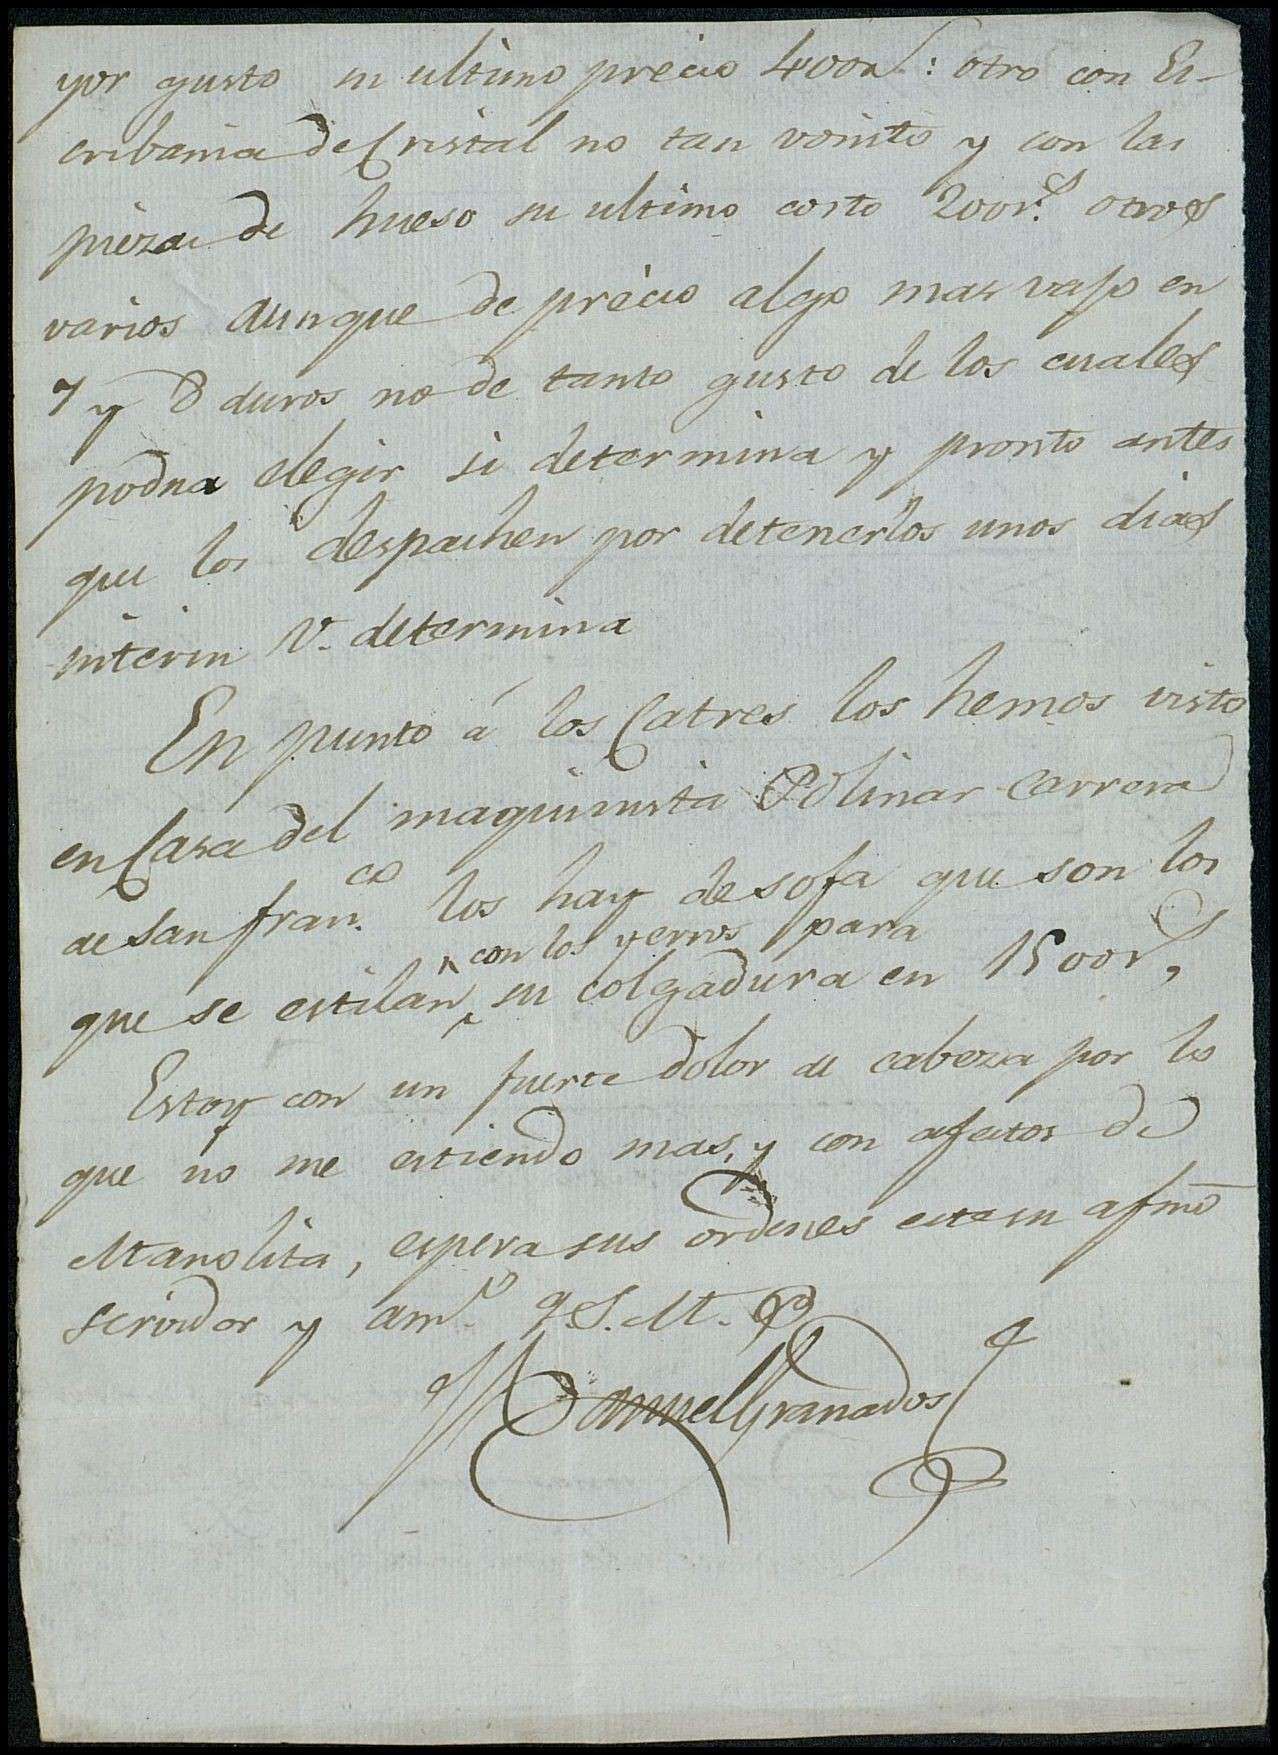 yor gusto su ultimo precio 400 r.s: otro con Es-
cribania de Cristal no tan vonito y con las
piezas de hueso su ultimo costo 200 r.s otros
varios aunque de precio algo mas vajo en
7 y 8 duros no de tanto gusto de los cuales
podra elegir si determina y pronto antes
que los despachen por detenerlos unos dias
interin V. determina
En punto á los Catres los hemos visto
en Casa del maquinista Polinar Carrera
de San fran.co los hay de sofa que son los
con los yerros para
que se estilan, su colgadura en 1500 r.s,
Estoy con un fuerte dolor de cabeza por lo
que no me estiendo mas, y con afectos de
Manolita, espera sus ordenes este su afmo
servidor y am.o q S. M. B
Manuel Granados